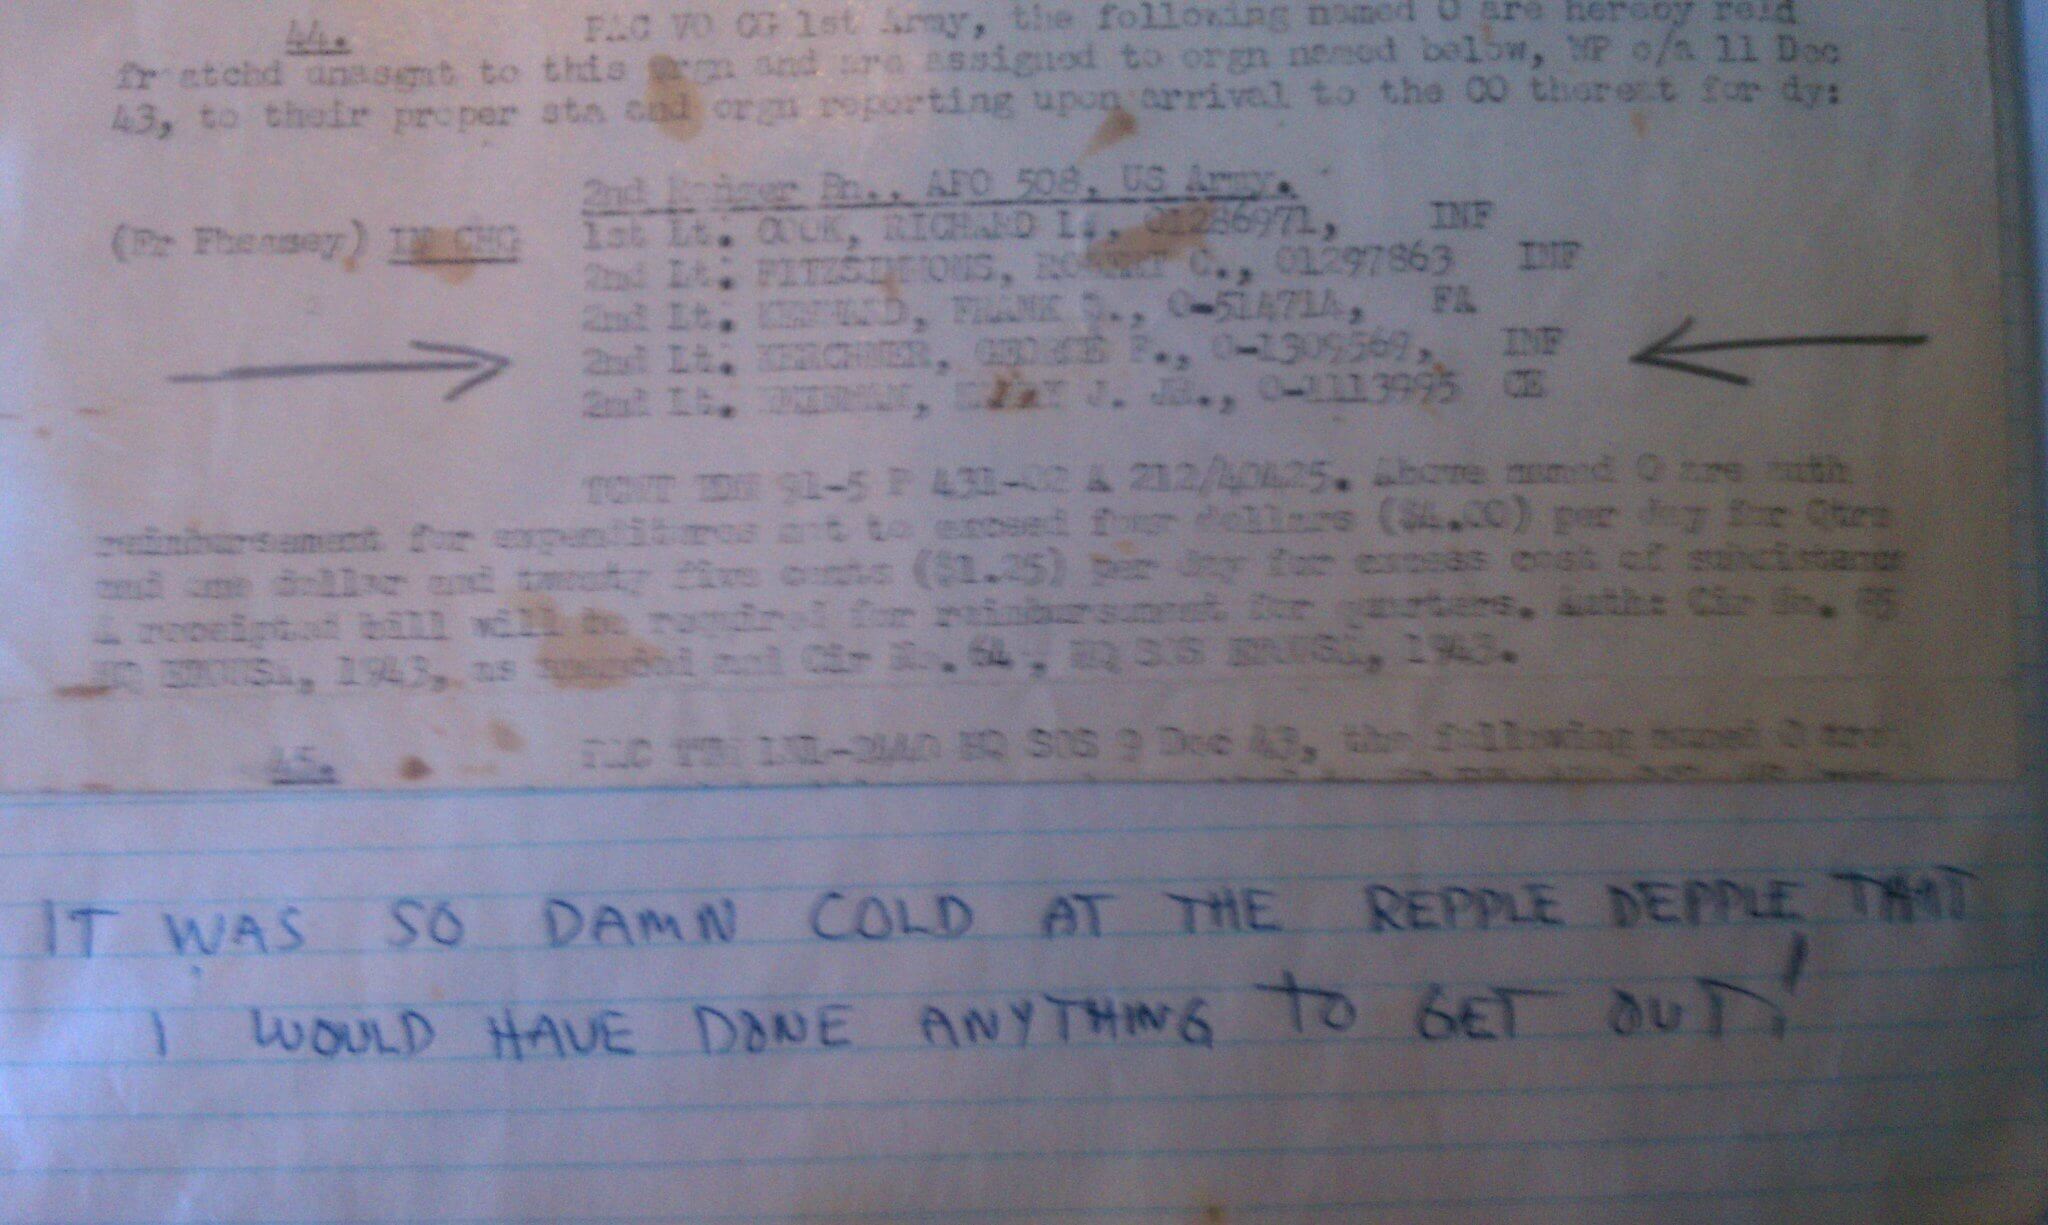 44. PAC VO CG 1st Army, the following named O are hereby reld
fr atchd unasgnt to this orgn and are assigned to orgn named below, WP o/a 11 Dec
43, to their proper sta and orgn reporting upon arrival to the CO thereat for dy:
2nd Ranger Bn., APO 508, US Army.
(Fr Pheasey) IN CHG 1st Lt. COOK, RICHARD 01286971, INF
2nd Lt. FITZSIMMONS, ROBERT C., 01297863 INF
2nd Lt. KENNARD, FRANK 0-514714, FA
2nd Lt. KERCHNER, GEORGE F., 0-1309569, INF
2nd Lt. J. JR., 0-1113995 CE
TCNT 91-5 P 431-02 A 212/40425. Above named O are auth
reimbursement for expenditures not to exceed four dollars ($4.00) per day for Qtrs
and one dollar and twenty five cents ($1.25) per day for excess cost of subsistence
A receipted bill will be required for reimbursement for quarters. Auth: Cir No.
HQ ETOUSA, 1943, as amended and Cir No. 64, HQ SOS ETOUSA, 1943.
45. HQ SOS 9 Dec 43, the following named O are
IT WAS SO DAMN COLD AT THE REPPLE DEPPLE THAT
I WOULD HAVE DONE ANYTHING TO GET OUT!